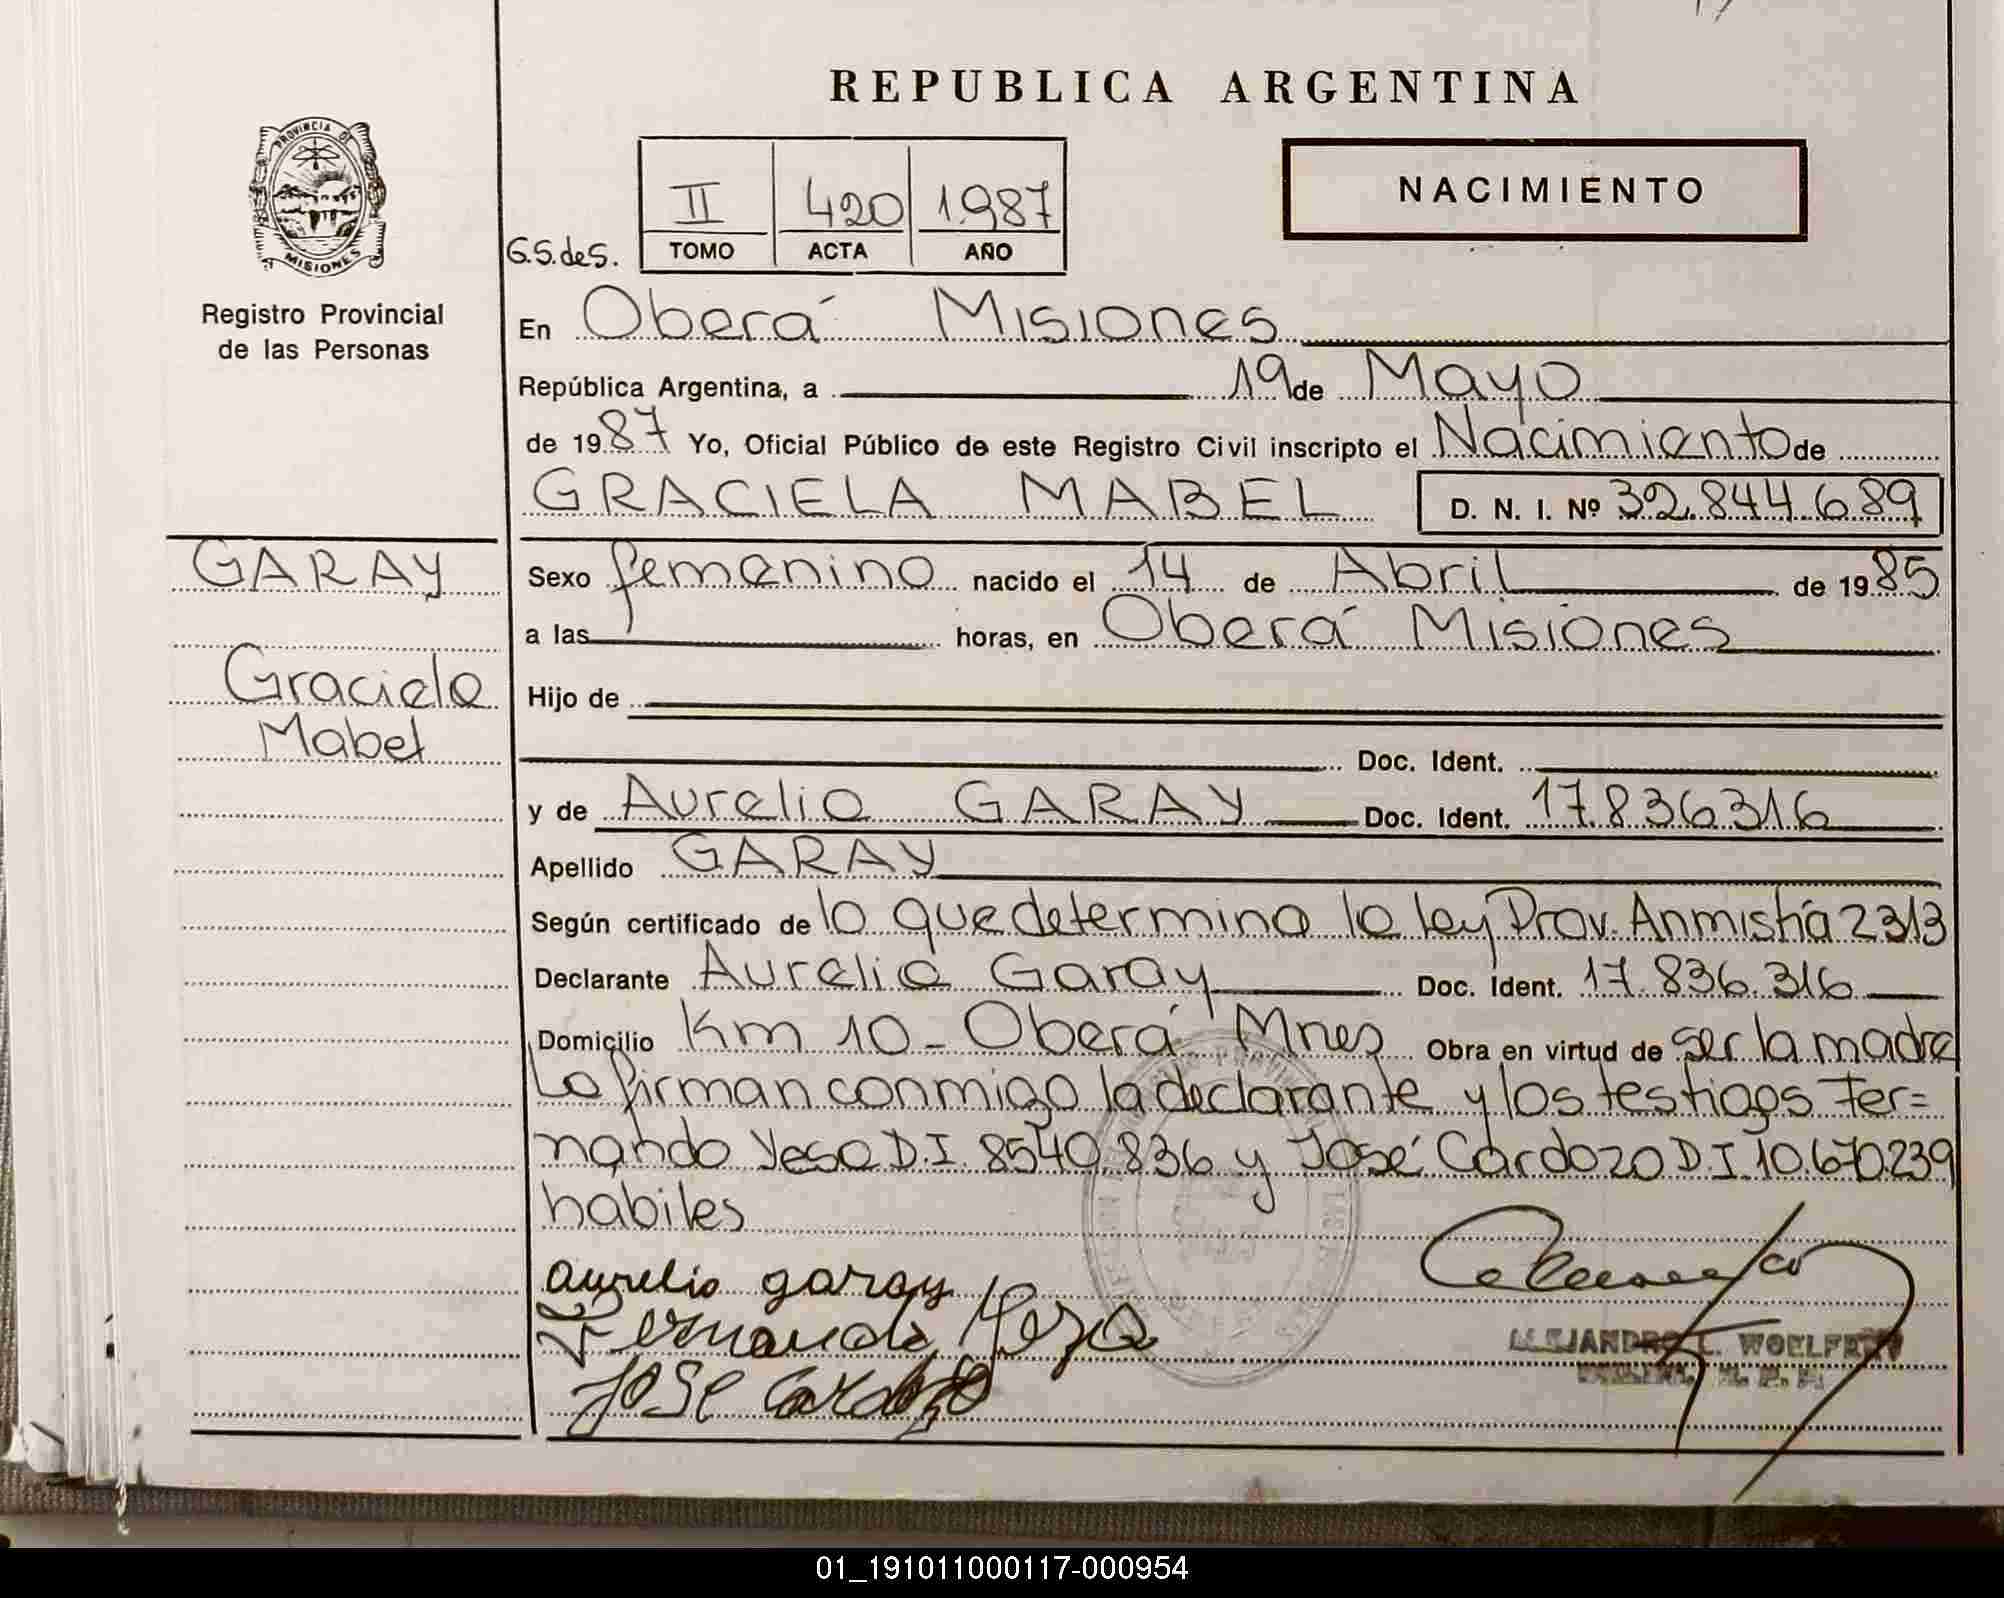 REPUBLICA ARGENTINA
PROVINCIA DE
MISIONES
Registro Provincial
de las Personas
NACIMIENTO
II 420 1987
G.S.deS. TOMO ACTA AÑO
En Oberá Misiones
República Argentina, a 19 de Mayo
de 1987 Yo, Oficial Público de este Registro Civil inscripto el Nacimiento de
GRACIELA MABEL D. N. I. Nº 32.844.689
GARAY
Graciela
Mabel
Sexo femenino nacido el 14 de Abril de 1985
a las horas, en Oberá Misiones
Hijo de
Doc. Ident.
y de Aurelia GARAY Doc. Ident. 17.836316
Apellido GARAY
Según certificado de lo que determina la ley Prov. Anmistía 2313
Declarante Aurelia Garay Doc. Ident. 17.836.316
Domicilio Km 10 - Oberá Mnes Obra en virtud de ser la madre
La firman conmigo la declarante y los testigos Fer=
nando Yeza D.I. 8540.836 y José Cardozo D.I 10.670.239
habiles
aurelia garay
Fernando Yeza
Jose Cardozo
ALEJANDRO L.
01_191011000117-000954